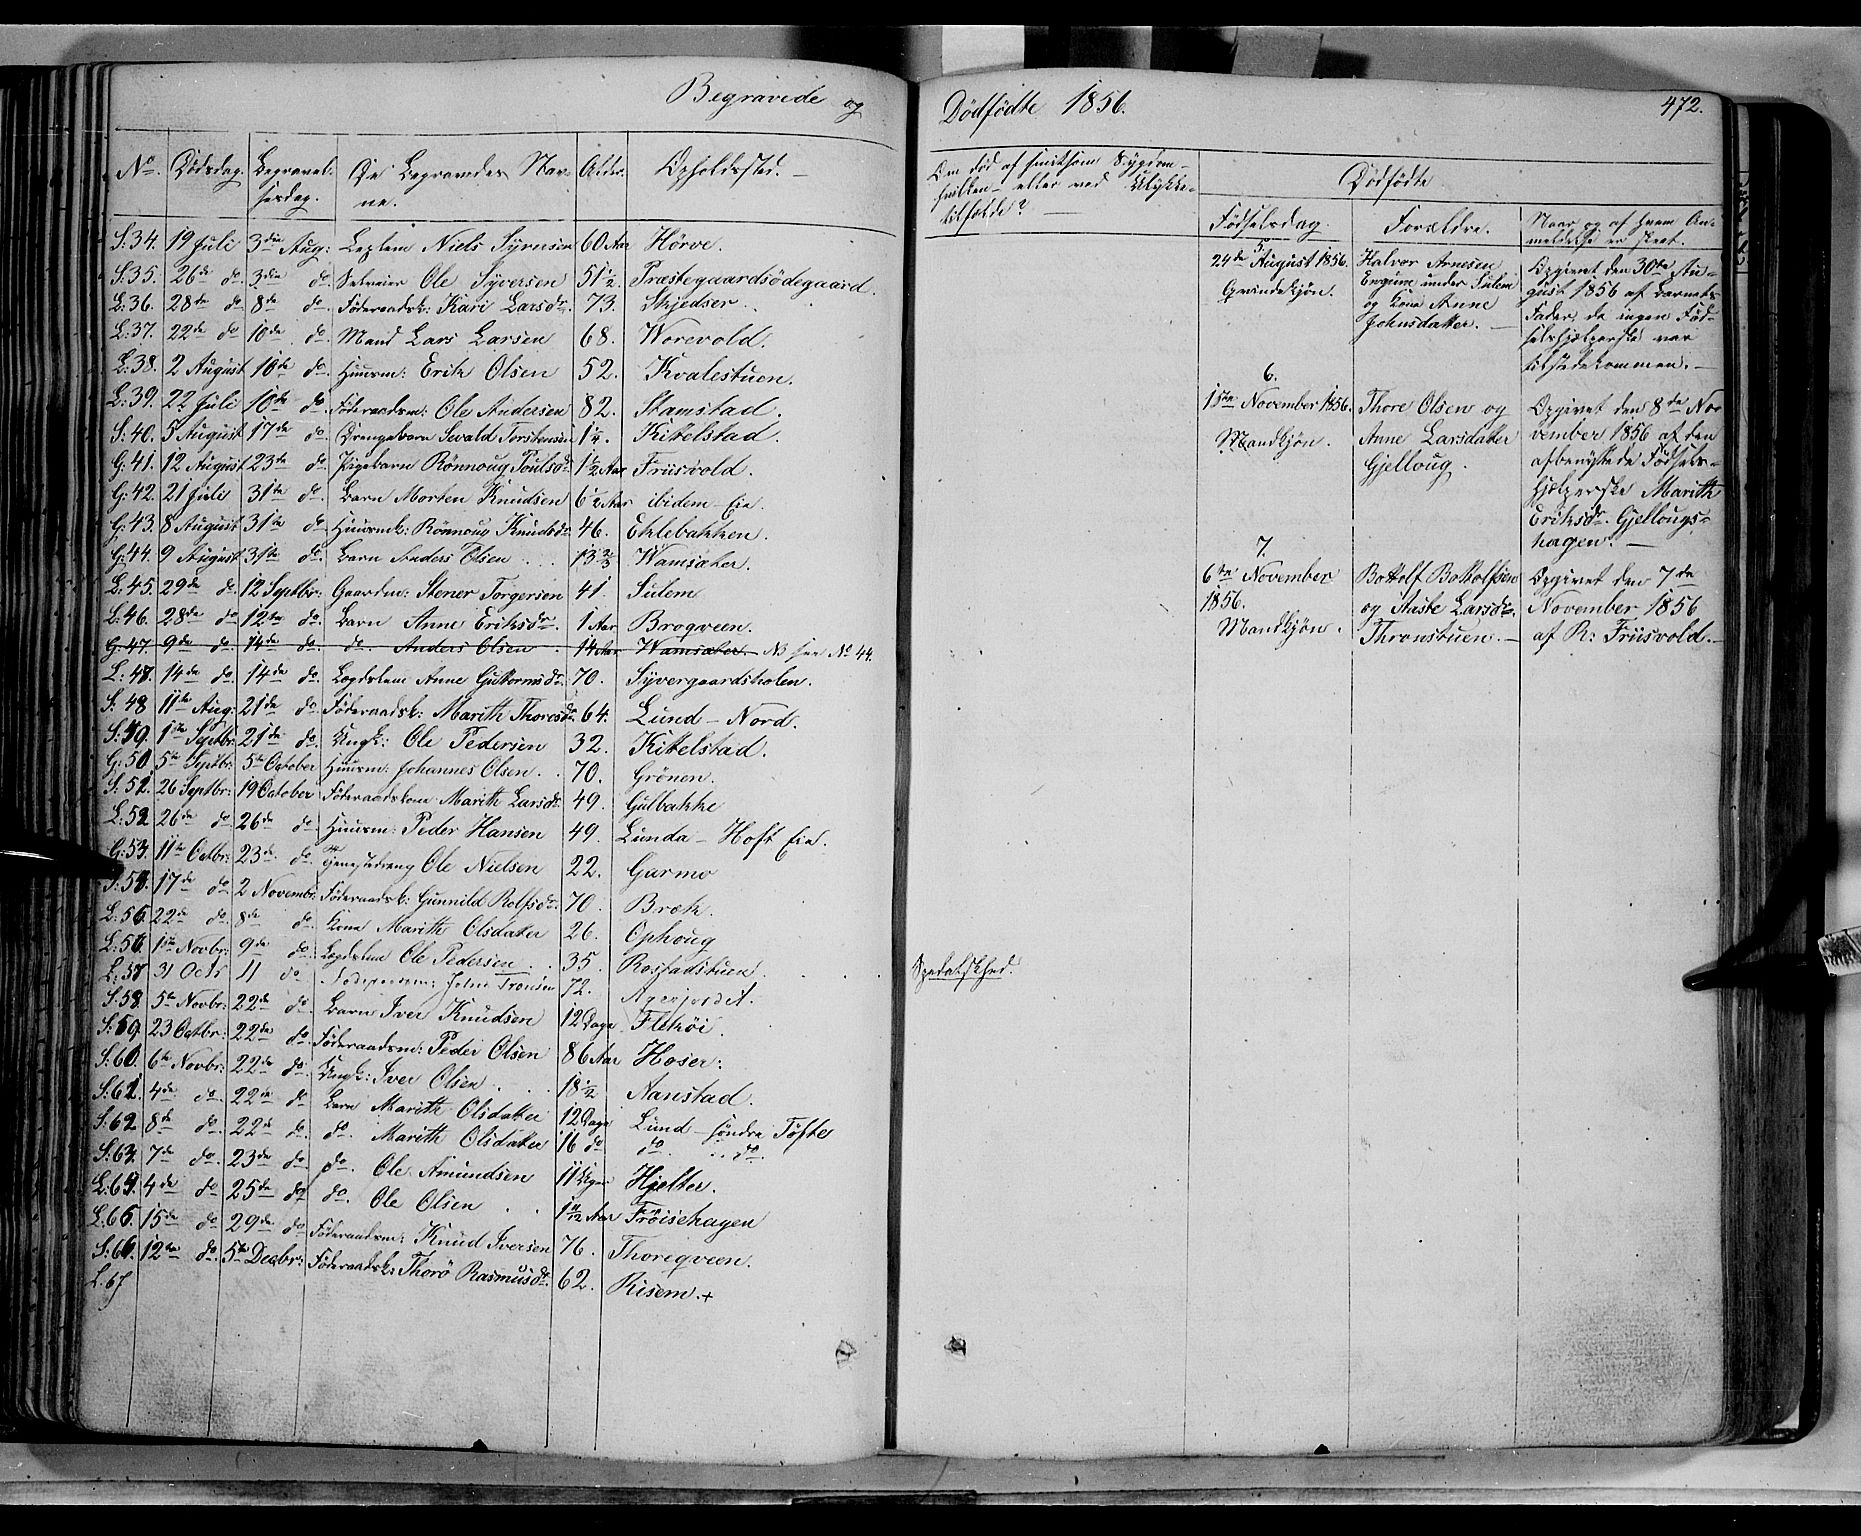 Begravede og
Dödfödte 1856.
472.
No. Dödsdag. Begravelsesdag. De Begravedes Navne. Alder. Opholdssted.
S: 34. 19 Juli 3die Aug: Niels Syrnsen 60 Aar Hörve.
S: 35. 26de do 3die do Selveier Ole Syversen 51 1/2. Præstegaardsödegaard.
L: 36. 28de do 8de do. Föderaadsk: Kari Larsdr. 73. Skjedser.
L: 37. 22de do 10de do. Mand Lars Larsen 68. Worevold.
L: 38. 2 August 10de do. Huusm: Erik Olsen 52. Kvalestuen.
L: 39. 22 Juli 10de do Föderaadsm: Ole Andersen 82. Stamstad.
S: 40. 5 August 17de do. Drengebarn Sevald Torstensen 1 1/4. Kitelstad.
G: 41. 12 August 23de do. Pigebarn Rönnoug Poulsdr. 1 1/2 Aar Friisvold.
G: 42. 21 Juli 31te do. Barn Morten Knudsen 6 1/2 Aar ibidem Eie.
G: 43. 8 August 31te do Huusmk: Rönnoug Knudsdr. 46. Eklebakken.
G: 44. 9 August 31te do. Barn Anders Olsen 13 2/3 Wamsæter.
L: 45. 29de do. 12 Septbr: Gaardm: Stener Torgersen 41. Sulem.
L: 46. 28de do 12te do. Barn Anne Eriksdr. 1 Aar Broqveen.
G: 47. 9de do 14de do. do. Anders Olsen 14 Aar Wamsæter. NB see No 44.
L: 47. 14de do. 14de do. Lægdslem Anne Guttormsdr. 70. Syvergaardsholen.
S. 48 11te Aug: 21de do. Föderaadsk: Marith Thoresdr. 64. Lund - Nord.
S: 49. 1ste Septbr. 21de do. Ungk: Ole Pedersen 32. Kitelstad.
G: 50. 5te Septbr: 5te October Huusm: Johannes Olsen 70. Grönen.
S. 51. 26 Septbr: 19 October Föderaadskone Marith Larsdr. 49. Gulbakke
L: 52. 26de do 26de do Huusm: Peder Hansen 49. Lunda - Hoft Eie.
G: 53. 11te Octbr: 23de do. Tjenestedreng Ole Nielsen 22. Garmo
S: 54. 17de do 2 Novembr: Föderaadsk: Gunnild Rolfsdr. 70. Bræk.
L: 55. 22de do. 8de do. Kone Marith Olsdater 26. Ophoug
L: 56. 1ste Novbr: 9de do. Lægdslem Ole Pedersen 35. Rostadstuen. Spedalskhed.
L: 57 31 Octb 11 do John Tronsen 72. Agerjordet.
S: 58. 5te Novbr: 22de do. Barn Iver Knudsen 12 Dage Fleköi.
S: 59 23 Octbr: 22de do. Föderaadsm: Peder Olsen 86 Aar Hoser.
S: 60. 6te Novbr: 22de do. Ungk: Iver Olsen 18 1/2 Aanstad.
S: 61. 4de do. 22de do Barn Marith Olsdater 12 Dage Lund - söndre Tofte
S: 62. 8de do. 22de do. do. Marith Olsdater 16 do do. do.
S: 63. 7de do. 23de do do. Ole Amundsen 11 Uger Hjelter.
L: 64. 4de do 25de do do. Ole Olsen 1 11/12 Aar Fröisehagen
L: 65. 15de do 29de do Föderaadsm: Knud Iversen 76. Thoreqveen.
S: 66. 12te do. 5te Decbr: Föderaadsk: Thorö Rasmusdr. 62. Risem.+
L. 67
Om död af smitsom Sygdom - hvilken - eller ved Ulykkestilfælde?
Dödfödte
Födselsdag
Forældre.
Naar og af hvem Anmeldelse er skeet.
5.
24de August 1856.
Qvindekjön.
Halvor Arnesen
Engum under Sulem
og Kone Anne
Johnsdatter.
Opgivet den 30te August
1856 af Barnets
Fader, da ingen Födselshjelperske
var
tilstædekommen.
6.
1ste November 1856.
Mandkjön.
Thore Olsen og
Anne Larsdatter
Gjelloug.
Opgivet den 8de November
1856 af den
afbenyttede Födselshjelperske
Marith
Eriksdr. Gjellougshagen.
7.
6te November
1856.
Mandkjön.
Bottolf Bottolfsen
og Aaste Larsdr.
Thronstuen.
Opgivet den 7de
November 1856
af R: Friisvold.